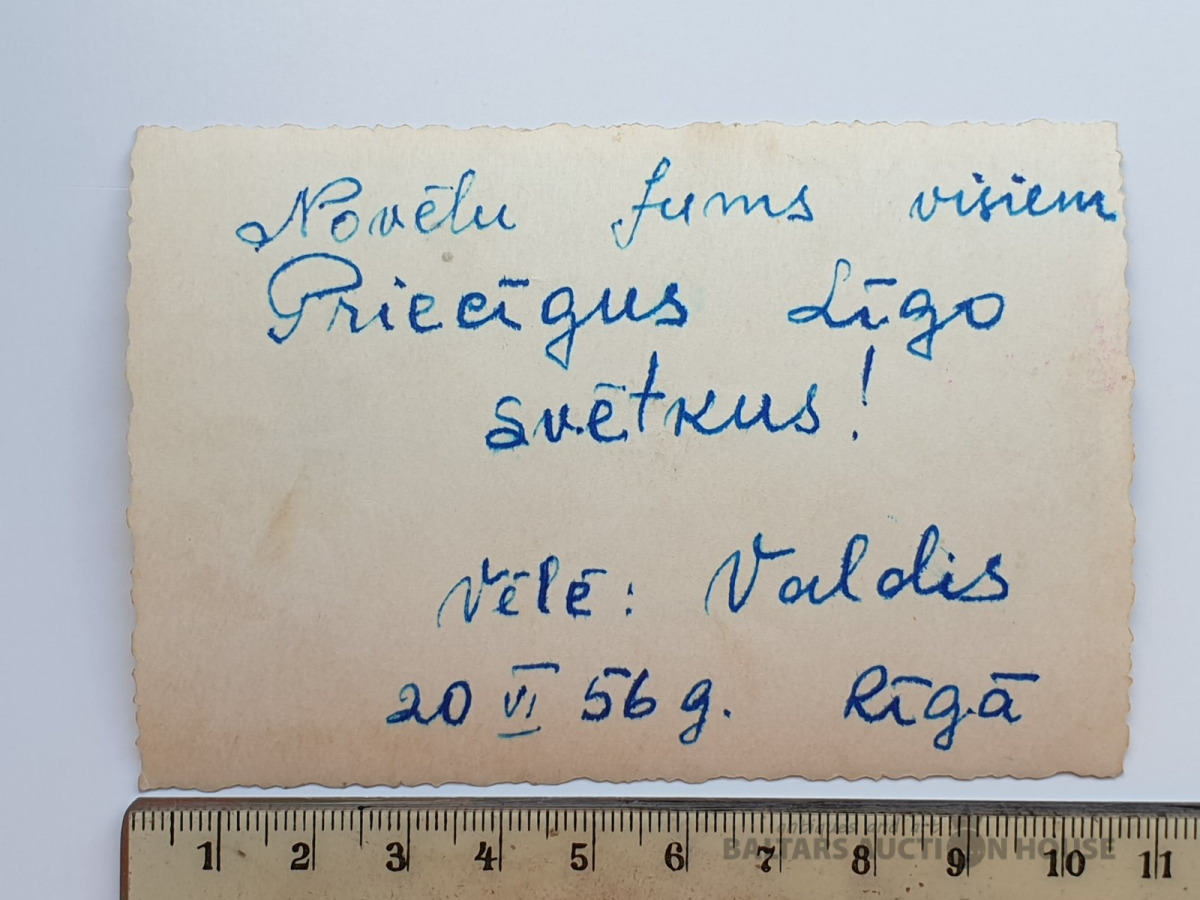 Novēlu Jums visiem
Priecīgus Līgo
svētkus!
Vēlē: Valdis
20 VI 56 g. Rīgā
1 2 3 4 5 6 7 8 9 10 11
antiques and art
BALTARS AUCTION HOUSE